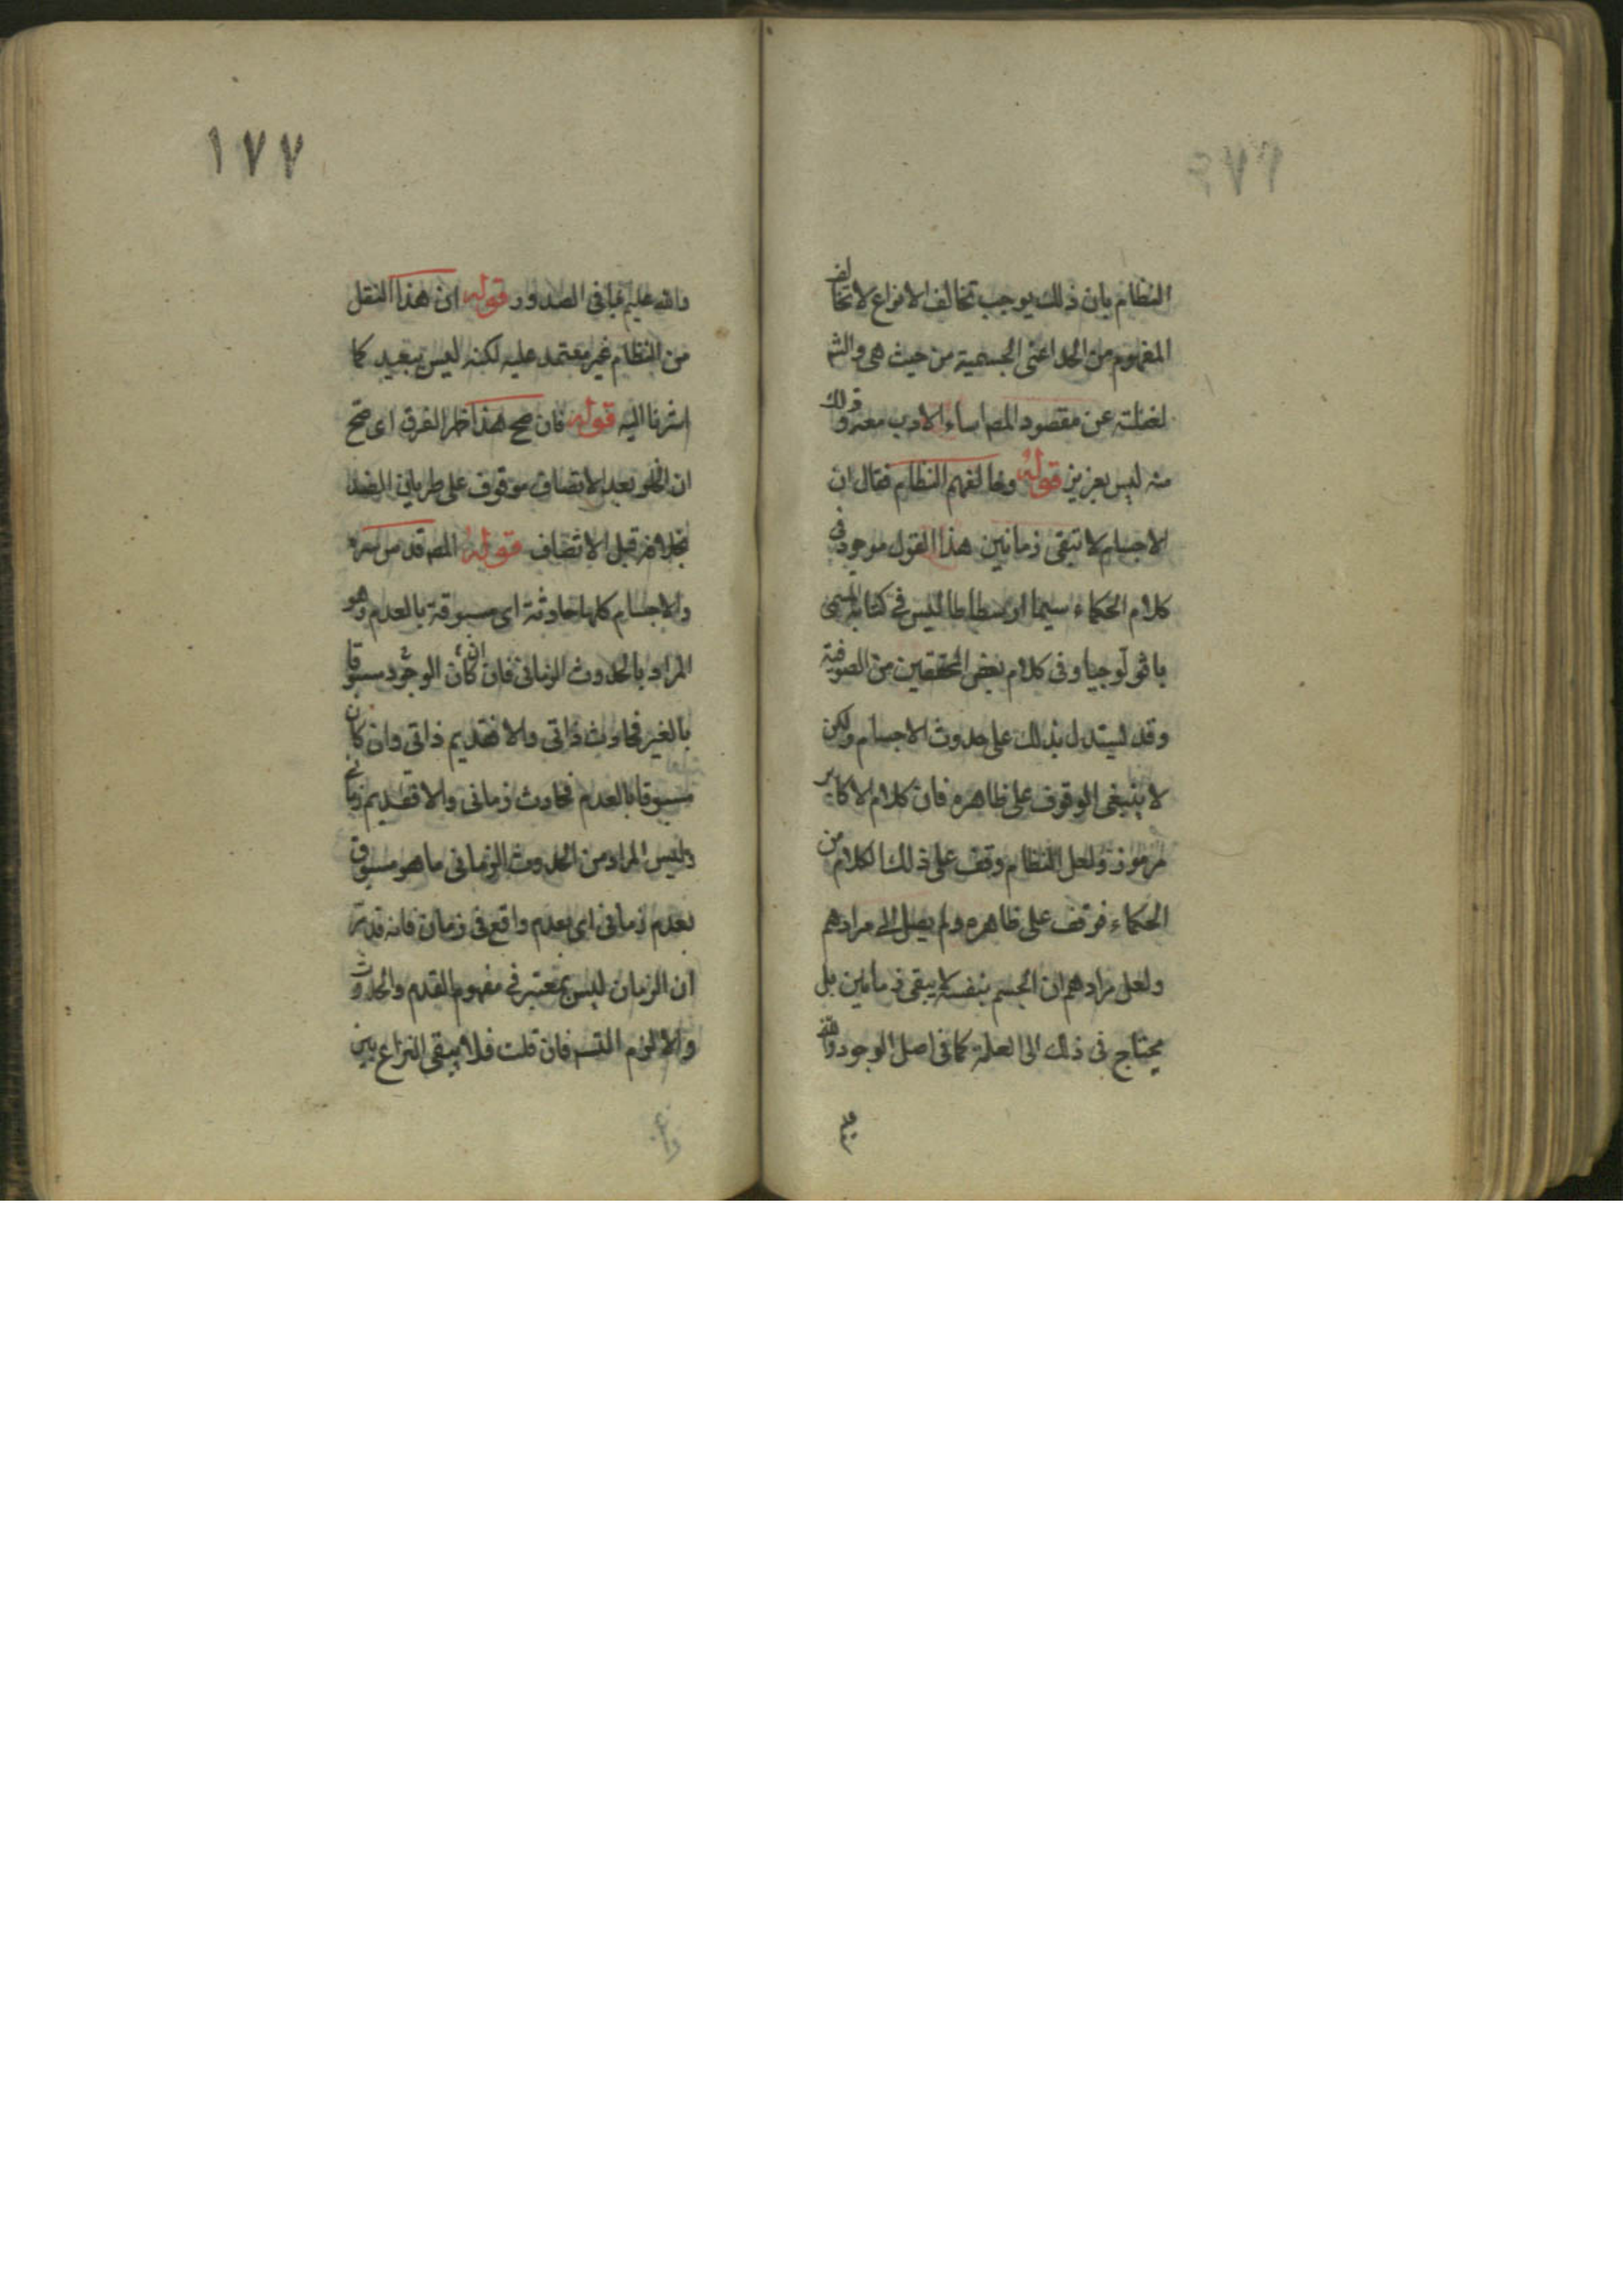 النظام بان ذلك يوجب تخالف الانواع لا تخالف
المفهوم من الحد اعنى الجسمية من حيث هى والش
لغفلته عن مقصود المص اساء الادب معه و قولك
منه ليس بعزيز قوله وخالفهم النظام فقال ان
الاجسام لا تبقى زمانين هذا القول موجود فى
كلام الحكماء سيما ارسطاطاليس فى كتابه المسمى
باثولوجيا وفى كلام بعض المحققين من الصوفية
وقد ليستدل بذلك على حدوث الاجسام ولكن
لا ينبغى الوقوف على ظاهره فان كلام الاكابر
مرموزة ولعل النظام وقف على ذلك الكلام من
الحكماء فوقف على ظاهره ولم يصل الى مرادهم
ولعل مرادهم ان الجسم بنفسه لا يبقى زمانين بل
يحتاج فى ذلك الى العلة كما فى اصل الوجود والله
١٧٧
والله عليم بما فى الصدور قوله ان هذا النقل
من النظام غير معتمد عليه لكنه ليس ببعيد كما
اشرنا اليه قوله فان صح هذا ظهر الفرق اى صح
ان الخلو بعد الاتصاف موقوف على طريان الضد
بخلافه قبل الاتصاف قوله المص قدس سره
والاجسام كلها حادثة اى مسبوقة بالعدم وهو
المراد بالحدوث الزمانى فان كان الوجود مسبوقا
بالغير فحادث ذاتى والا فقديم ذاتى وان كان
مسبوقا بالعدم فحادث زمانى والا فقديم زمانى
وليس المراد من الحدوث الزمانى ما هو مسبوق
بعدم زمانى اى بعدم واقع فى زمان فانه قد مر
ان الزمان ليس بمعتبر فى مفهوم القدم والحدوث
والا لزم التسـ فان قلت فلا يبقى النزاع بين